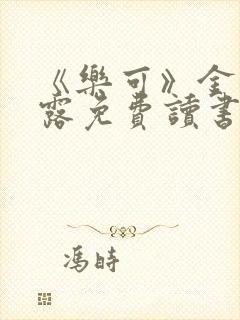 《樂可》金
露免費讀書
馮時